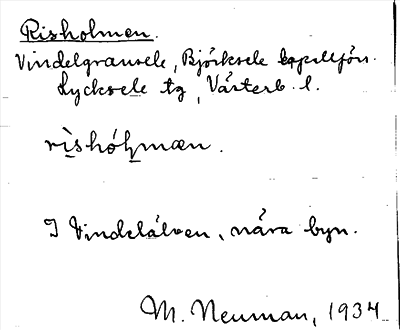 Risholmen.
Vindelgransele, Björksele kapellförs.
Lycksele tg, Västerb. l.
rìshól̠mæn.
I Vindelälven, nära byn.
M. Neuman, 1934